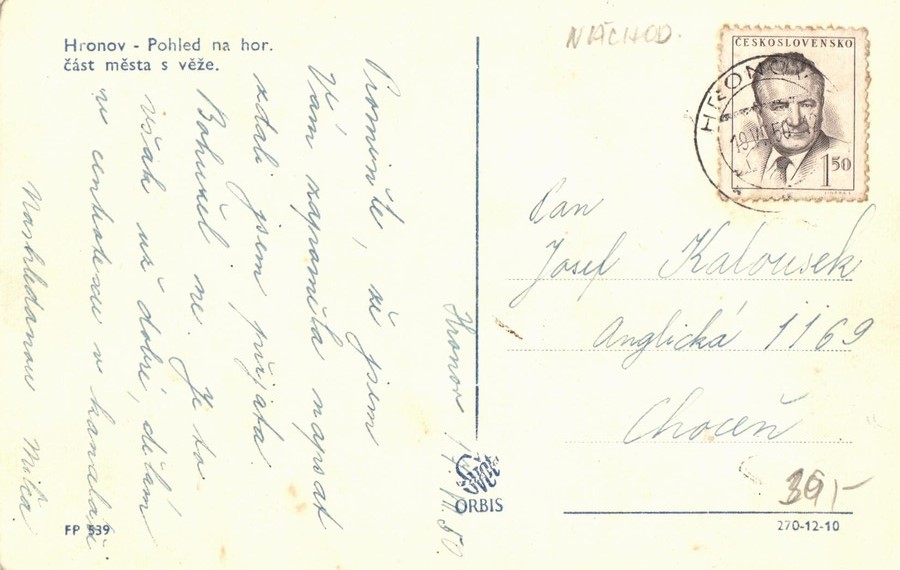 Hronov - Pohled na hor.
část města s věže.
NÁCHOD.
ČESKOSLOVENSKO
HRONOV
19.VI.50
1 50
Hronov 17.VI.50.
Promiňte, že jsem
Vám zapomněla napsat
zdali jsem přijata
Bohužel ne. Je to
však už dobré, dělám
v centrale v kanceláři.
Nashledanou Mila
Pan
Josef Kalousek
Anglická 1169
Choceň
39,-
ORBIS
FP 539
270-12-10